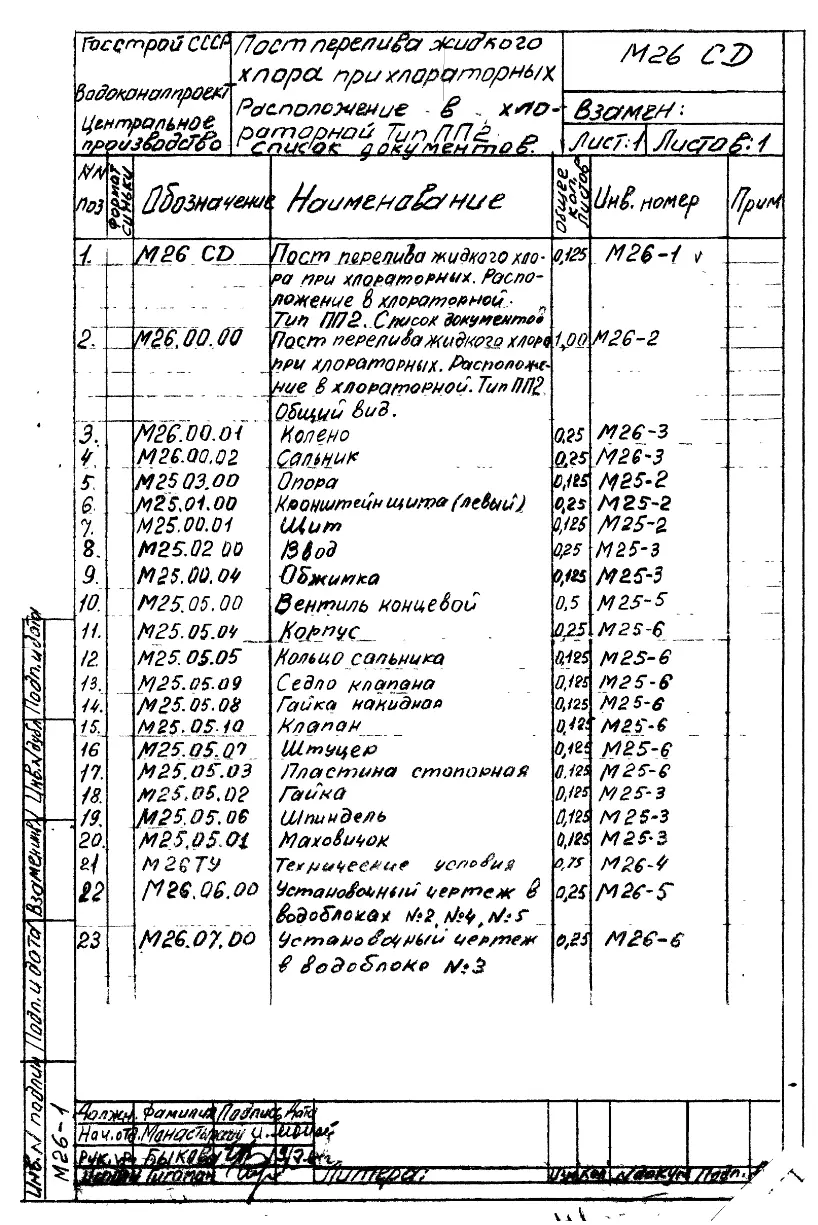 Госстрой СССР
Водоканалпроект
Центральное
производство
Пост перелива жидкого
хлора при хлораторных
Расположение в хло-
раторной Тип ПП2
список документов.
М26 CD
Взамен:
Лист:1 Листов:1
NN поз Формат синьки Обозначение Наименавание Общее кол. листов Инв. номер Прим
1. М26 CD Пост перелива жидкого хло- 0,125 М26-1
ра при хлораторных. Распо-
ложение в хлораторной.
Тип ПП2. Список документов
2. М26.00.00 Пост перелива жидкого хлора 1,00 М26-2
при хлораторных. Расположе-
ние в хлораторной. Тип ПП2
Общий вид.
3. М26.00.01 Колено 0,25 М26-3
4. М26.00.02 Сальник 0,25 М26-3
5. М25 03.00 Опора 0,125 М25-2
6. М25.01.00 Кронштейн щита (левый) 0,25 М25-2
7. М25.00.01 Щит 0,125 М25-2
8. М25.02 00 Ввод 0,25 М25-3
9. М25.00.04 Обжимка 0,125 М25-3
10. М25.05.00 Вентиль концевой 0,5 М25-5
11. М25.05.04 Корпус 0,25 М25-6
12 М25.05.05 Кольцо сальника 0,125 М25-6
13. М25.05.09 Седло клапана 0,125 М25-6
14. М25.05.08 Гайка накидная 0,125 М25-6
15. М25.05.10 Клапан 0,125 М25-6
16 М25.05.07 Штуцер 0,125 М25-6
17. М25.05.03 Пластина стопорная 0,125 М25-6
18. М25.05.02 Гайка 0,125 М25-3
19. М25.05.06 Шпиндель 0,125 М25-3
20. М25.05.01 Маховичок 0,125 М25-3
21 М26ТУ Технические условия 0,75 М26-4
22 М26.06.00 Установочный чертеж в 0,25 М26-5
водоблоках №2, №4, №5
23 М26.07.00 Установочный чертеж 0,25 М26-6
в водоблоке №3
Инв. N подлин Подп. и дата Взамен инв. Инв. N дубл. Подп. и дата
М26-1
Должн. Фамилия Подпись Дата
Нач. отд.
Рук. гр. Быкова
Литера:
N докум Подп.